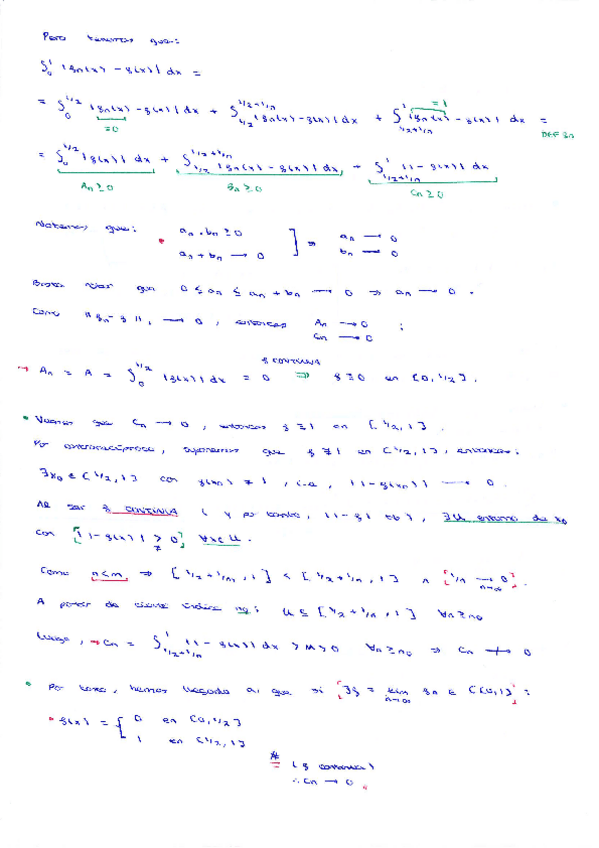 Pero tenemos que:
∫₀¹ |fn(x) - f(x)| dx =
= ∫₀^{1/2} |fn(x) - f(x)| dx + ∫_{1/2}^{1/2+1/n} |fn(x) - f(x)| dx + ∫_{1/2+1/n}^1 |fn(x) - f(x)| dx =
=0
=1
DEF fn
= ∫₀^{1/2} |f(x)| dx + ∫_{1/2}^{1/2+1/n} |fn(x) - f(x)| dx + ∫_{1/2+1/n}^1 |1 - f(x)| dx
An ≥ 0 Bn ≥ 0 Cn ≥ 0
Notemos que: an, bn ≥ 0
an + bn → 0 ] ⇒ an → 0
bn → 0
Basta ver que 0 ≤ an ≤ an + bn → 0 ⇒ an → 0.
Como ||fn - f||₁ → 0, entonces An → 0
Cn → 0 :
f CONTINUA
→ An = A = ∫₀^{1/2} |f(x)| dx = 0 ⇒ f ≡ 0 en [0, 1/2].
• Veamos que Cn → 0, entonces f ≡ 1 en [1/2, 1].
Por contrarrecíproco, suponemos que f ≢ 1 en [1/2, 1], entonces:
∃x₀ ∈ [1/2, 1] con f(x₀) ≠ 1, i.e, |1 - f(x₀)| → 0.
Al ser f CONTINUA (y por tanto, |1 - f| tb), ∃U entorno de x₀
con |1 - f(x)| > 0 ∀x ∈ U.
Como n<m ⇒ [1/2 + 1/n, 1] ⊂ [1/2 + 1/m, 1] ∧ [1/n → 0].
n→∞
A partir de cierto índice n₀: U ⊆ [1/2 + 1/n, 1] ∀n ≥ n₀
Luego, → Cn = ∫_{1/2+1/n}^1 |1 - f(x)| dx > M > 0 ∀n ≥ n₀ ⇒ Cn ↛ 0
• Por tanto, hemos llegado a, que si ∃f = lim fn ∈ C[0,1]:
n→∞
• f(x) = { 0 en [0, 1/2]
1 en [1/2, 1]
# (f continua)
∴ Cn → 0.